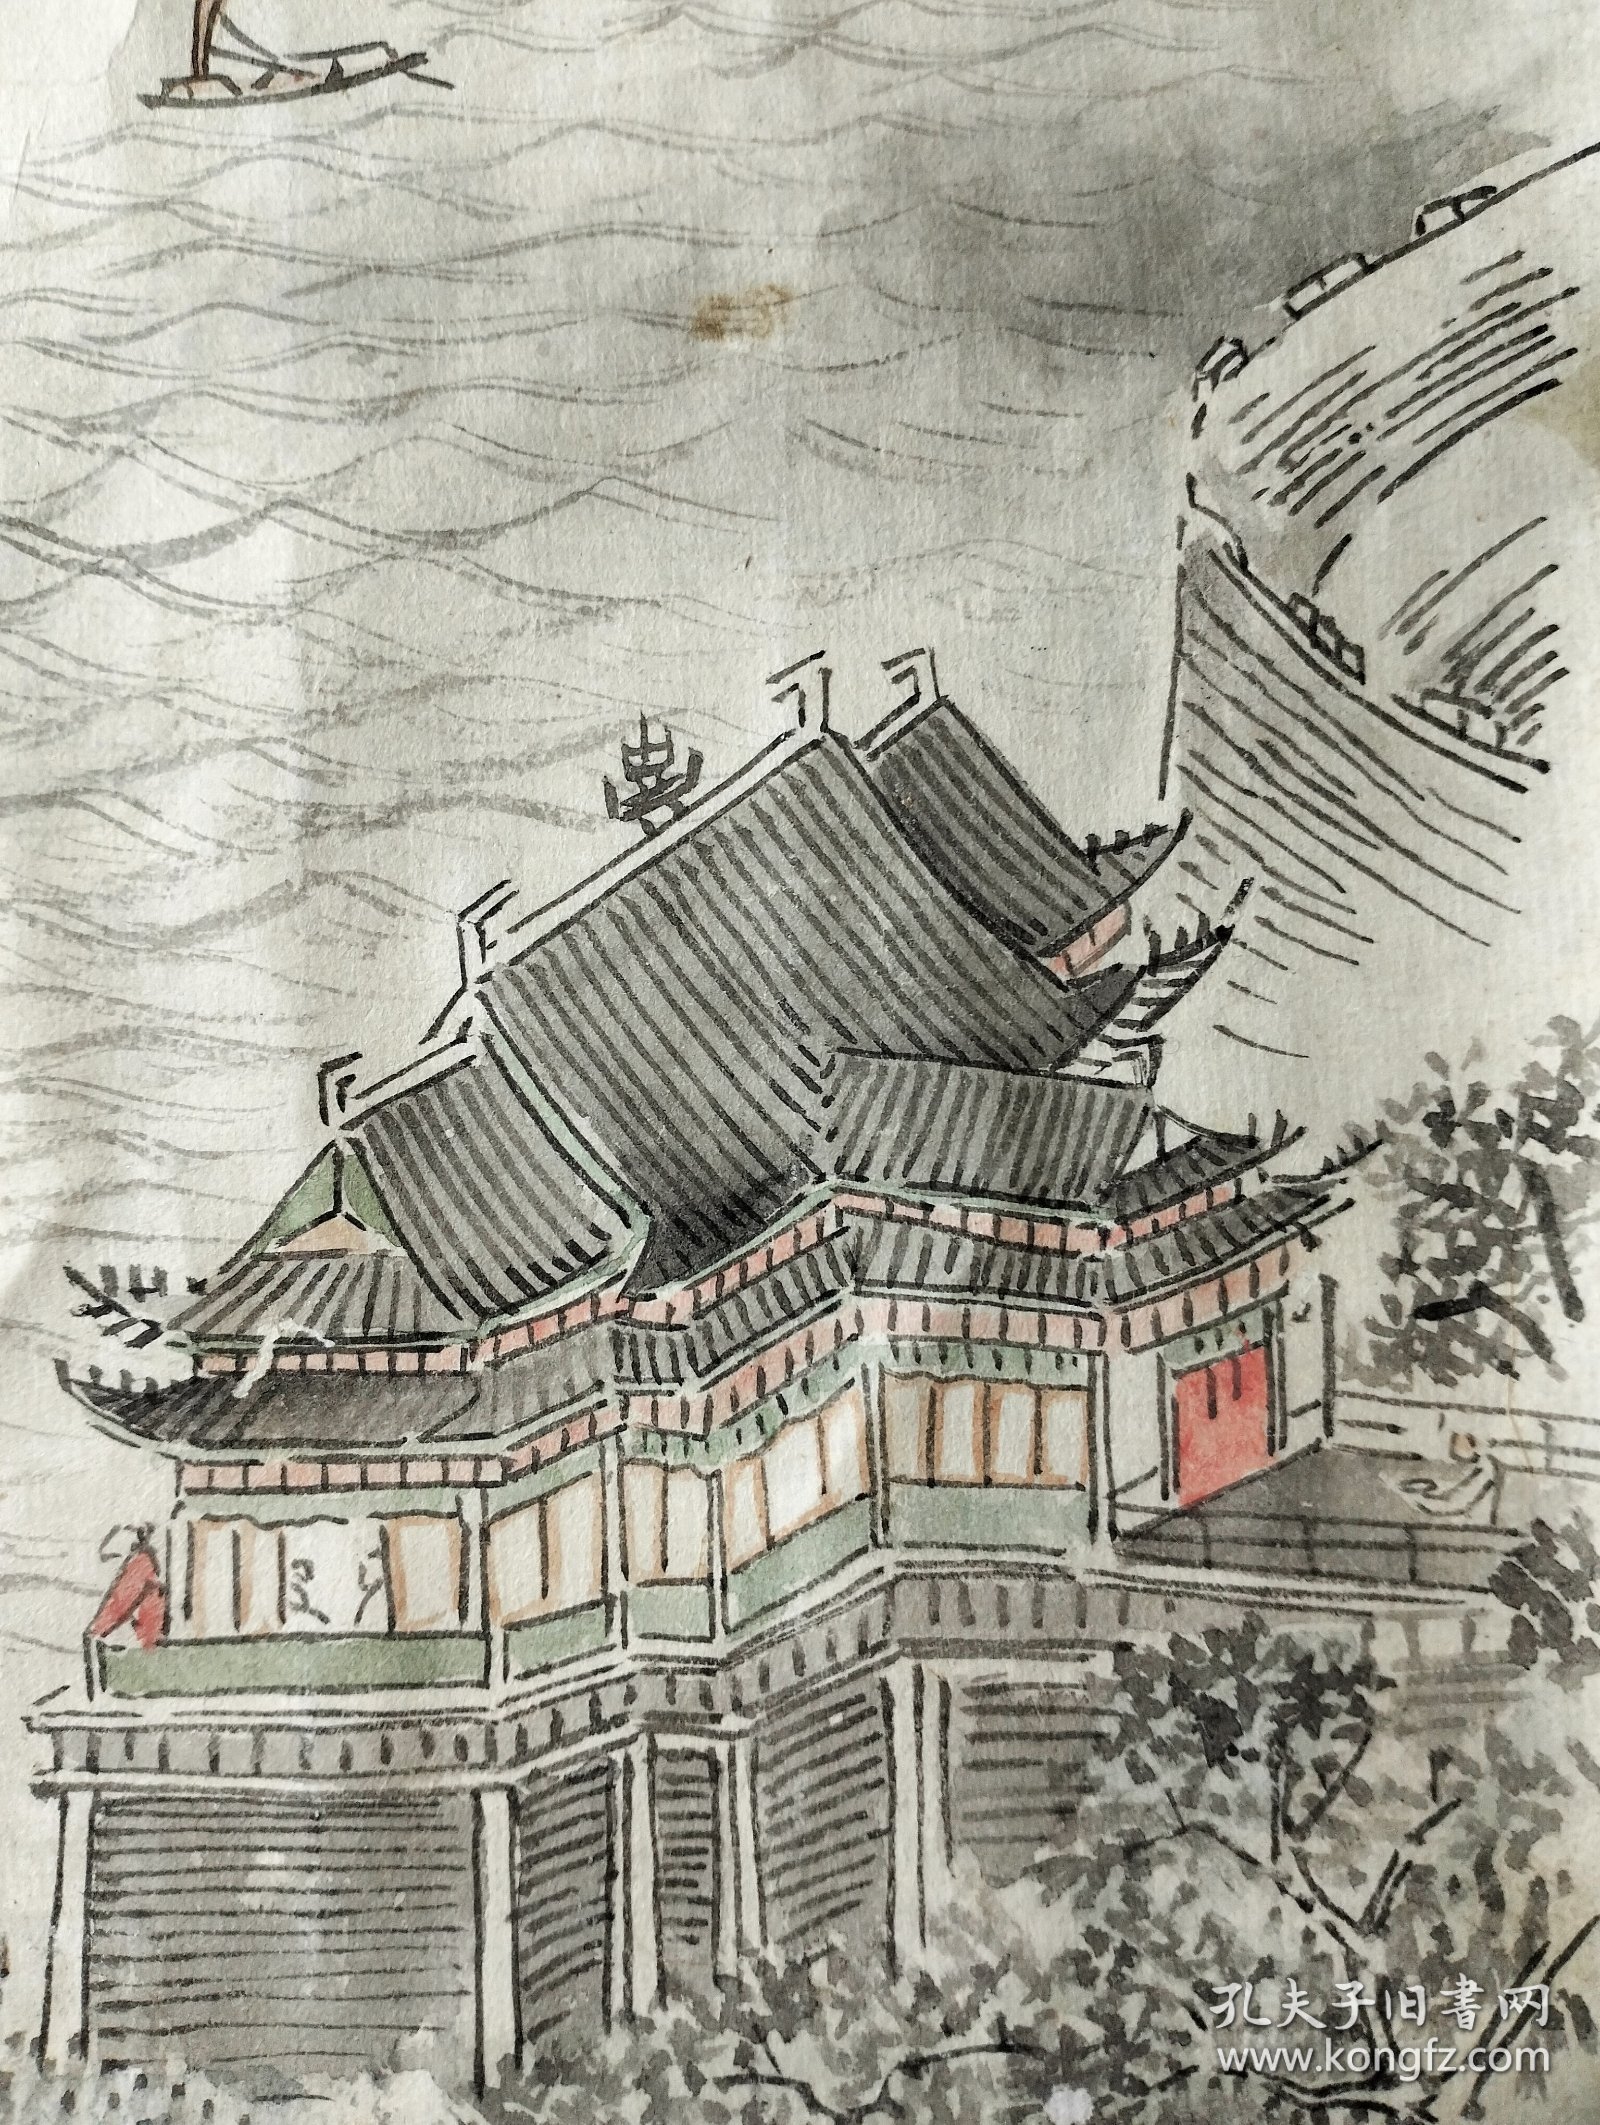 孔夫子旧書网
www.kongfz.com